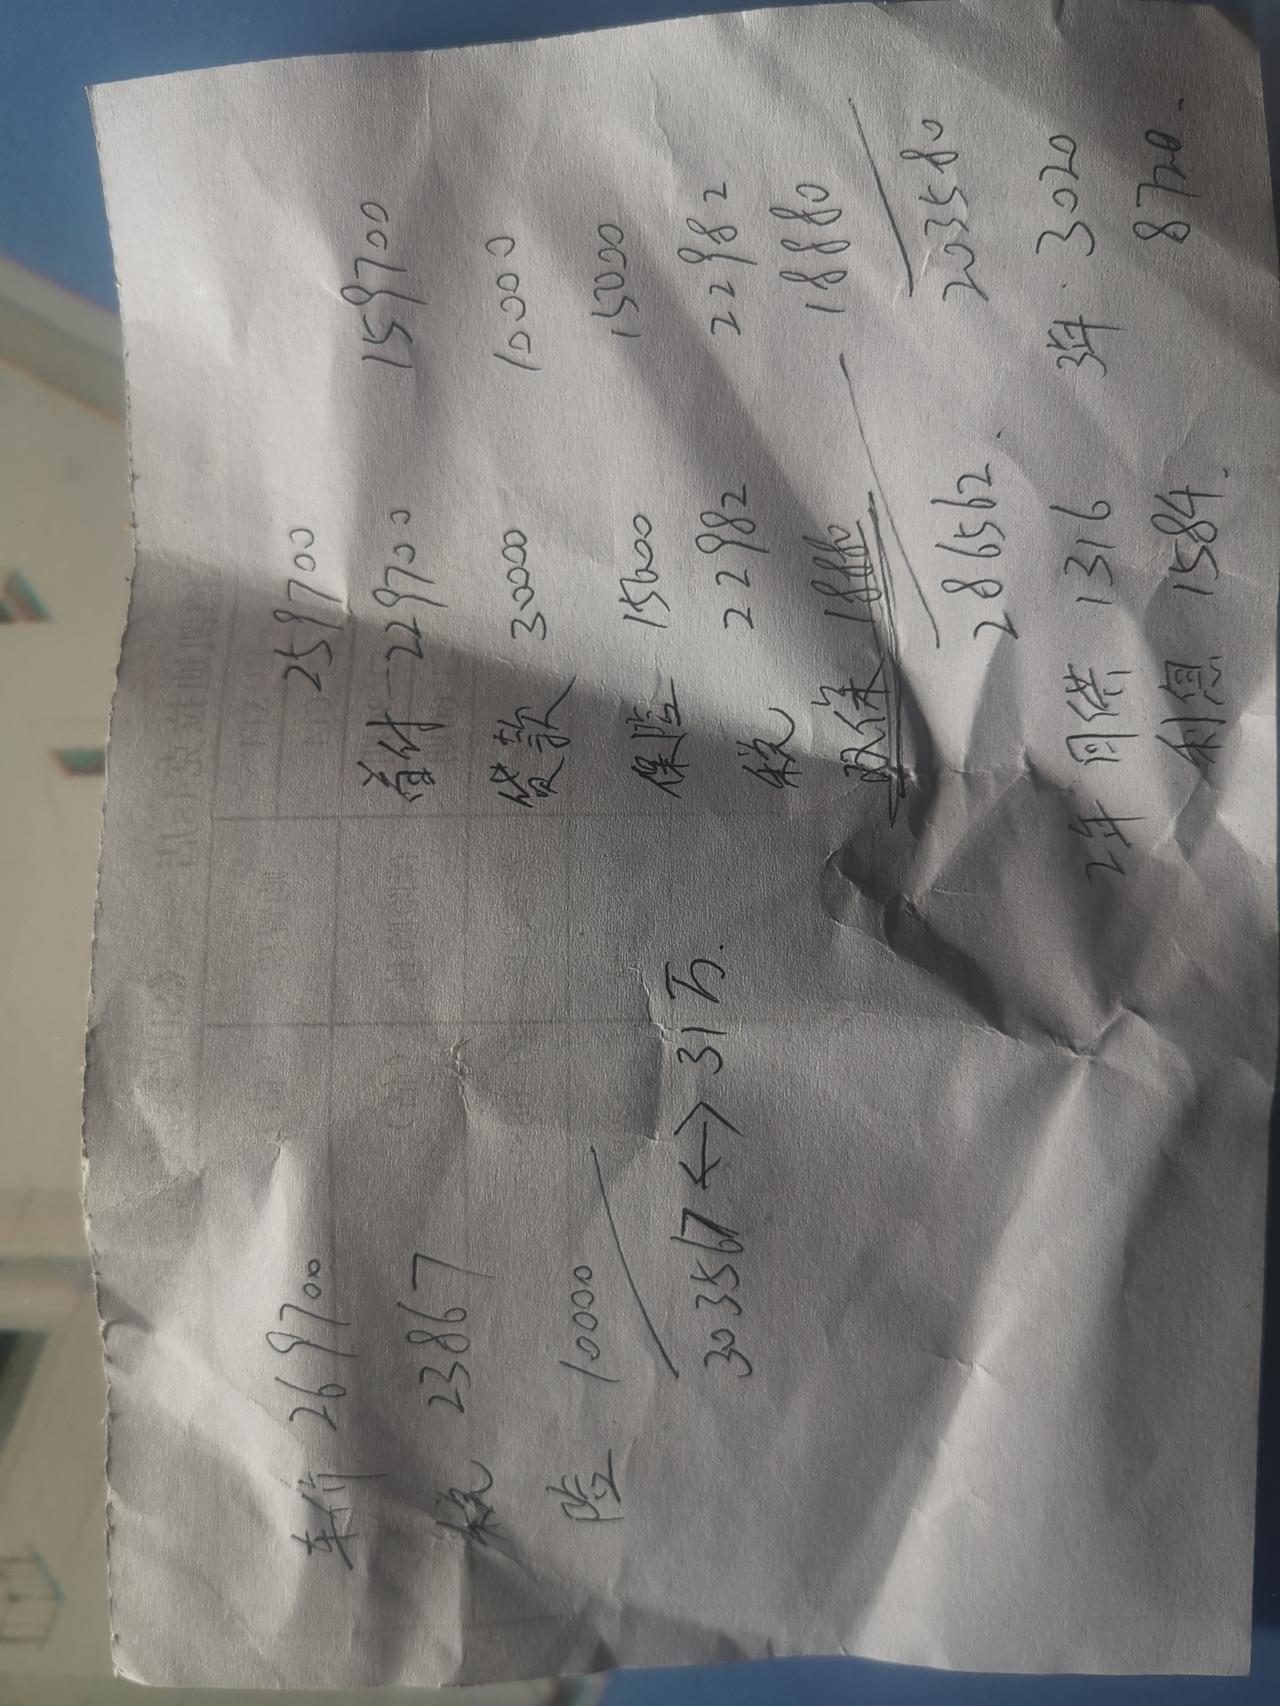 车价 269700
税 23867
险 10000
303567 <-> 31万.
259700
首付 229700 159700
贷款 30000 10000
保险 15000 15000
税 22982 22982
双保 18880 18880
286562. 203580
2年 月供 1316 3年. 3020
利息 1584. 8720.